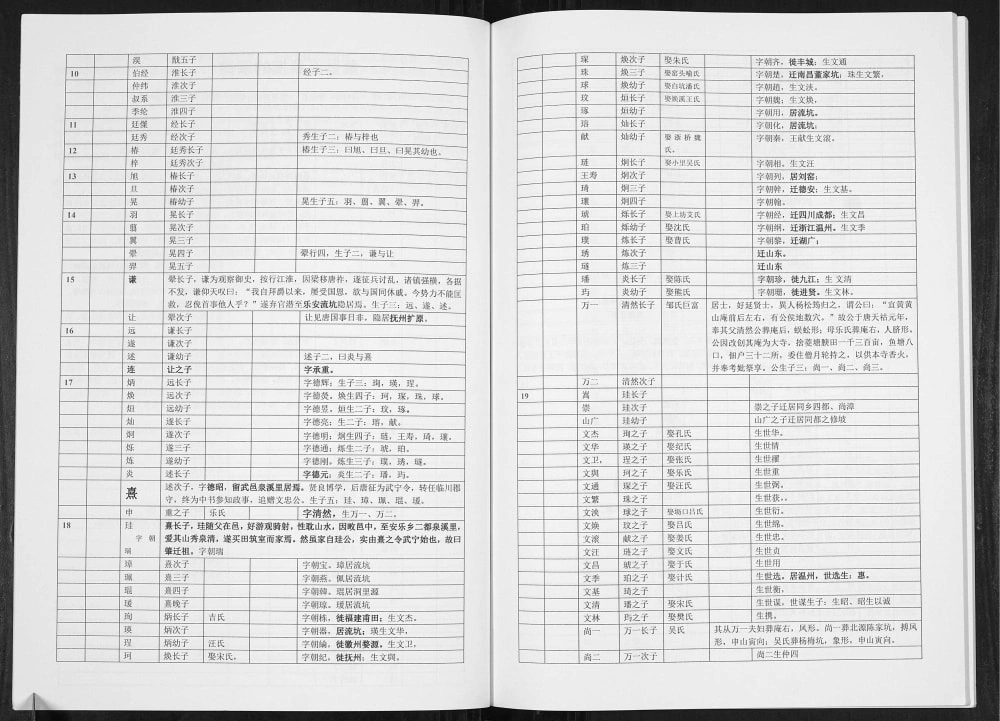 淏 戬五子
10 伯经 淮长子 经子二。
仲纬 淮次子
叔系 淮三子
季纶 淮四子
11 廷偰 经长子
廷秀 经次子 秀生子二；椿与梓也
12 椿 廷秀长子 椿生子三；曰旭、曰旦、曰晃其幼也。
梓 廷秀次子
13 旭 椿长子
旦 椿次子
晃 椿幼子 晃生子五：羽、翦、翼、翚、羿。
14 羽 晃长子
翦 晃次子
翼 晃三子
翚 晃四子 翚行四，生子二，谦与让
羿 晃五子
15 谦 翚长子，谦为观察御史，按行江淮，因梁移唐祚，遂征兵讨乱，诸镇强横，各据
不发，谦仰天叹曰：“我自拜爵以来，屡受国恩，欲与国同休戚，今势力不能匡
救，忍俛首事他人乎？”遂弃官潜至乐安流坑隐居焉。生子三：远、遂、述。
让 翚次子 让见唐国事日非，隐居抚州扩原。
16 远 谦长子
遂 谦次子
述 谦幼子 述子二，曰炎与熹
连 让之子 字承重。
17 炳 远长子 字德辉；生子三：珣，瑛，珵。
焕 远次子 字德荧。焕生四子：珂，琛，珠，球。
烜 远幼子 字德昱，烜生二子：玟，琢。
灿 遂长子 字德亮；生二子：珞，献。
炯 遂次子 字德明；炯生四子：琏，王寿，琦，瓖。
烁 遂三子 字德通；烁生二子：琥，珀。
炼 遂幼子 字德刚，炼生三子：璞，琇，琏。
炎 述长子 字德元；炎生二子：璠，玙。
熹 述次子，字德昭，留武邑泉溪里居焉。贤良博学，后膺征为武宁令，转任临川郡
守，终为中书参知政事，追赠文忠公。生子五：珪、璋、珮、琨、瑗。
申 重之子 乐氏 字清然，生万一、万二。
18 珪 熹长子，珪随父在邑，好游观骑射，性耽山水，因畋邑中，至安乐乡二都泉溪里，
字朝 爱其山秀泉清，遂买田筑室而家焉。然虽家自珪公，实由熹之令武宁始也，故曰
瑞 肇迁祖。字朝瑞
璋 熹次子 字朝宝。璋居流坑
珮 熹三子 字朝燕。佩居流坑
琨 熹四子 字朝韓。琨居洞里源
瑗 熹晚子 字朝琼。瑗居流坑
珣 炳长子 吉氏 字朝栋，徙福建甫田；生文杰。
瑛 炳次子 字朝器，居流坑；瑛生文华，
珵 炳幼子 汪氏 字朝綸，徙徽州婺源。生文卫，
珂 焕长子 娶宋氏。 字朝纪，徙抚州；生文舆。
琛 焕次子 娶朱氏 字朝齐，徙丰城；生文通
珠 焕三子 娶窑头喻氏 字朝楚，迁南昌董家坑；珠生文繁，
球 焕幼子 娶白坑潘氏 字朝趙，生文泱。
玟 烜长子 娶焕溪王氏 字朝魏；生文焕，
琢 烜幼子 字朝用，居流坑。
珞 灿长子 字朝化，居流坑；
献 灿幼子 娶浙桥魏氏。 字朝泰，王献生文滚。
琏 炯长子 娶小里吴氏 字朝相。生文汪
王寿 炯次子 字朝列，居刘窑；
琦 炯三子 字朝幹，迁德安；生文基。
瓖 炯四子 字朝翰。
琥 烁长子 娶上坊艾氏 字朝经，迁四川成都；生文昌
珀 烁幼子 娶沈氏 字朝纲，迁浙江温州。生文季
璞 炼长子 娶曹氏 字朝黎，迁湖广；
琇 炼次子 迁山东。
琏 炼三子 迁山东
璠 炎长子 娶陈氏 字朝珍，徙九江；生 文清
玙 炎幼子 娶熊氏 字朝珊，徙进贤。生文林，
万一 清然长子 邹氏巨富 居士，好延贤士，異人杨松筠归之，谓公曰：“宜黄黄
山庵前后左右，有公侯地数穴。”故公于唐天祐元年，
奉其父清然公葬庵后，蜈蚣形；母乐氏葬庵右，人脐形。
公因改创其庵为大寺，捨菱塘膄田一千三百亩，鱼塘八
口，佃户三十二所，委住僧月轮持之，以供本寺香火，
并奉考妣祭享，公生子三：尚一、尚二、尚三。
万二 清然次子
19 嵩 珪长子
崇 珪次子 崇之子迁居同乡四都、尚漳
山广 珪幼子 山广之子迁居同都之修坡
文杰 珣之子 娶孔氏 生世华。
文华 瑛之子 娶纪氏 生世情
文卫， 珵之子 娶张氏 生世擢
文舆 珂之子 娶乐氏 生世重
文通 琛之子 娶汪氏 生世弼。
文繁 珠之子 生世荻。。
文泱 球之子 娶瑞口吕氏 生世衍。
文焕 玟之子 娶吕氏 生世绵。
文滚 献之子 娶姜氏 生世忠。
文汪 琏之子 娶文氏 生世贞
文昌 琥之子 娶于氏 生世用
文季 珀之子 娶计氏 生世选。居温州，世选生：惠。
文基 琦之子 生世衡，
文清 璠之子 娶宋氏 生世谋，世谋生子：生昭、昭生以诚
文林 玙之子 娶樊氏 生携。
尚一 万一长子 吴氏 其从万一夫妇葬庵右，凤形。尚一葬北源陈家坑，搏风
形、申山寅向；吴氏葬杨梅坑，象形，申山寅向。
尚二 万一次子 尚二生仲四